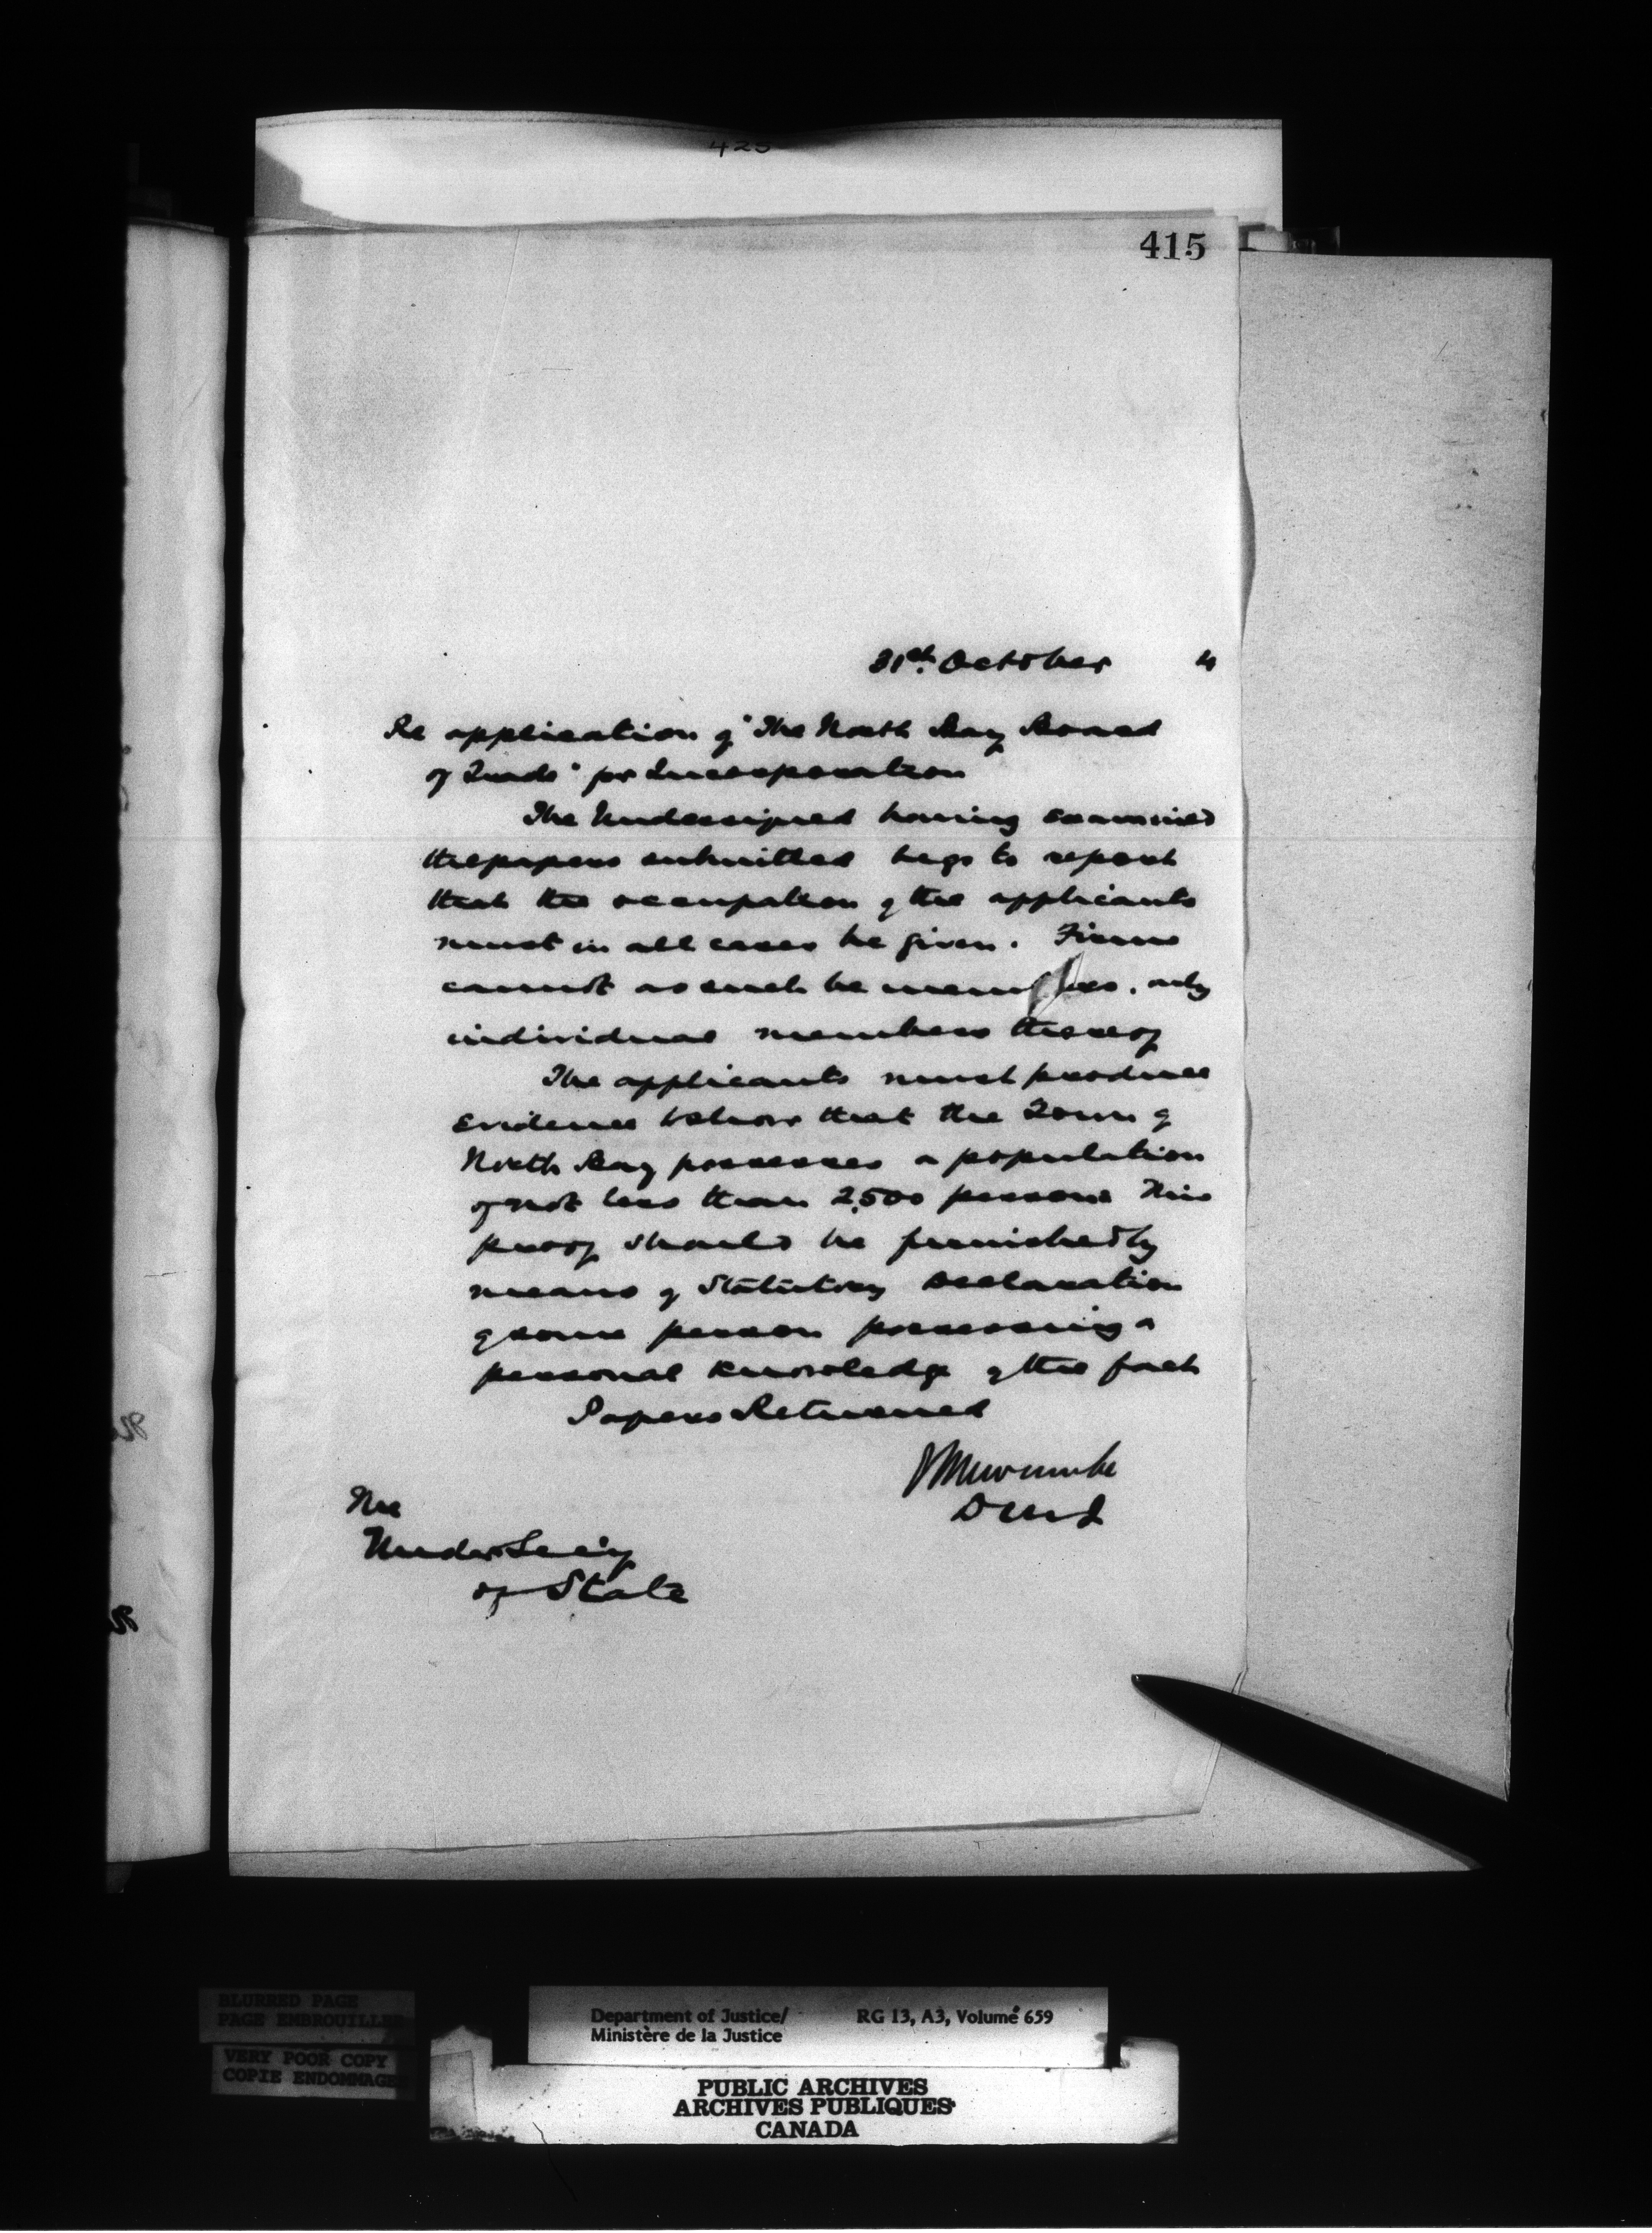 425
415
31st. October 4
Re application of "The North Bay Board
of Trade" for Incorporation
The Undersigned having examined
the papers submitted begs to report
that the occupation of the applicants
must in all cases be given. Firms
cannot as such be members, only
individual members thereof
The applicants must produce
evidence to show that the Town of
North Bay possesses a population
of not less than 2,500 persons This
proof should be furnished by
means of Statutory Declaration
of some person possessing a
personal knowledge of the fact
Papers Returned
Newcombe
DMJ
The
Under Sec'y
of State
BLURRED PAGE
PAGE EMBROUILLEE
VERY POOR COPY
COPIE ENDOMMAGE
Department of Justice/ RG 13, A3, Volume 659
Ministère de la Justice
PUBLIC ARCHIVES
ARCHIVES PUBLIQUES
CANADA